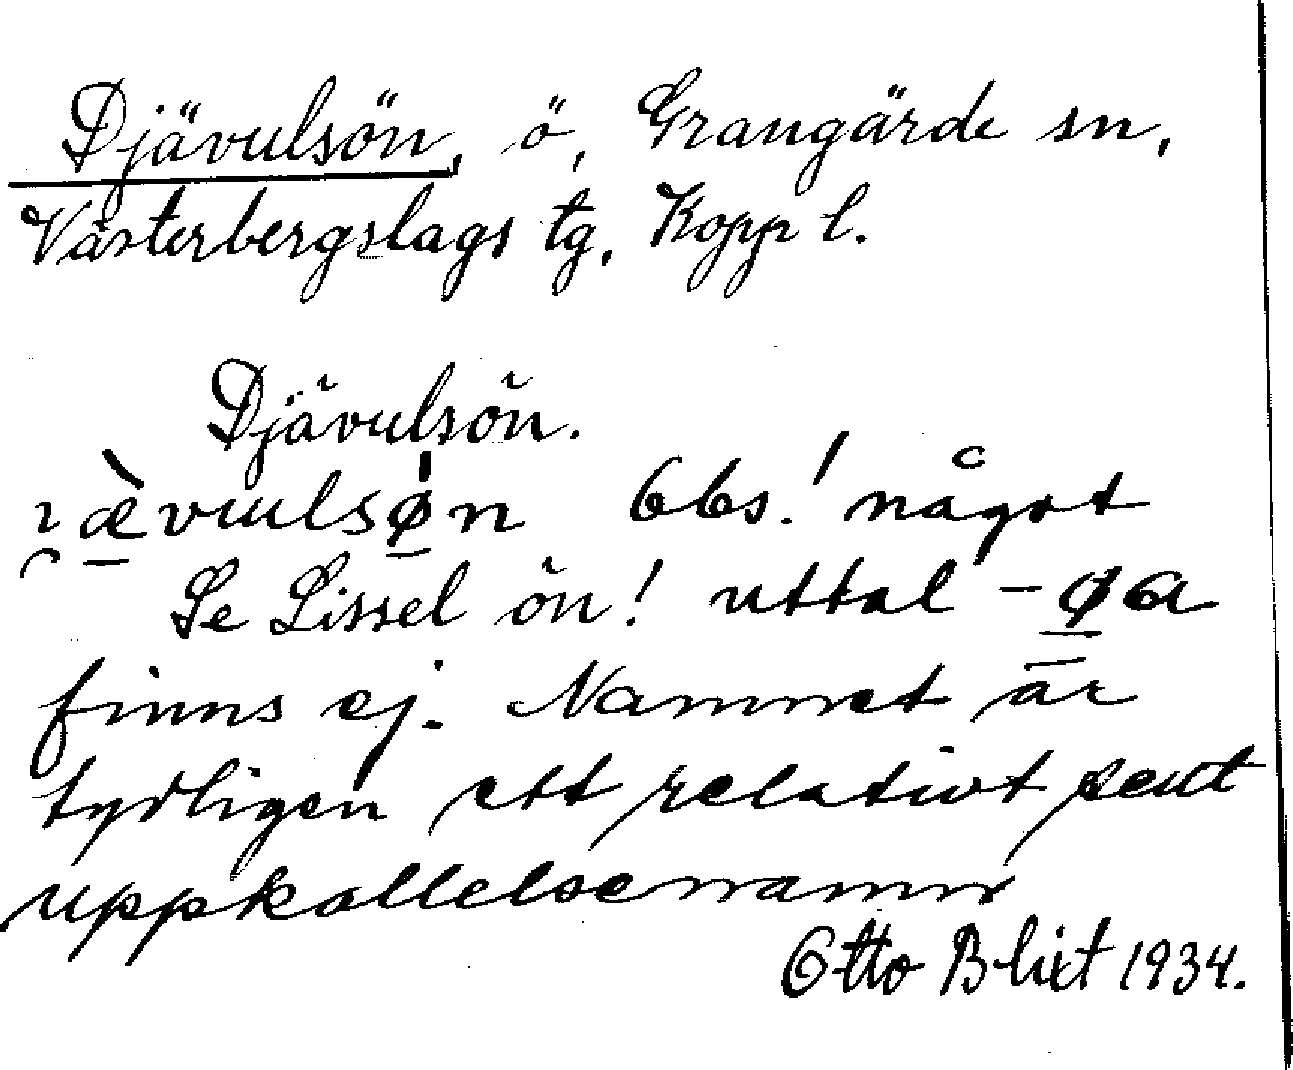 Djävulsön, ö, Grangärde sn,
Västerbergslags tg. Kopp l.
Djävulsön.
ı̯æ̀vulsøn Obs! något
Se Lissel ön! uttal -øa
finns ej. Namnet är
tydligen ett relativt sent
uppkallelsenamn
Otto Blixt 1934.